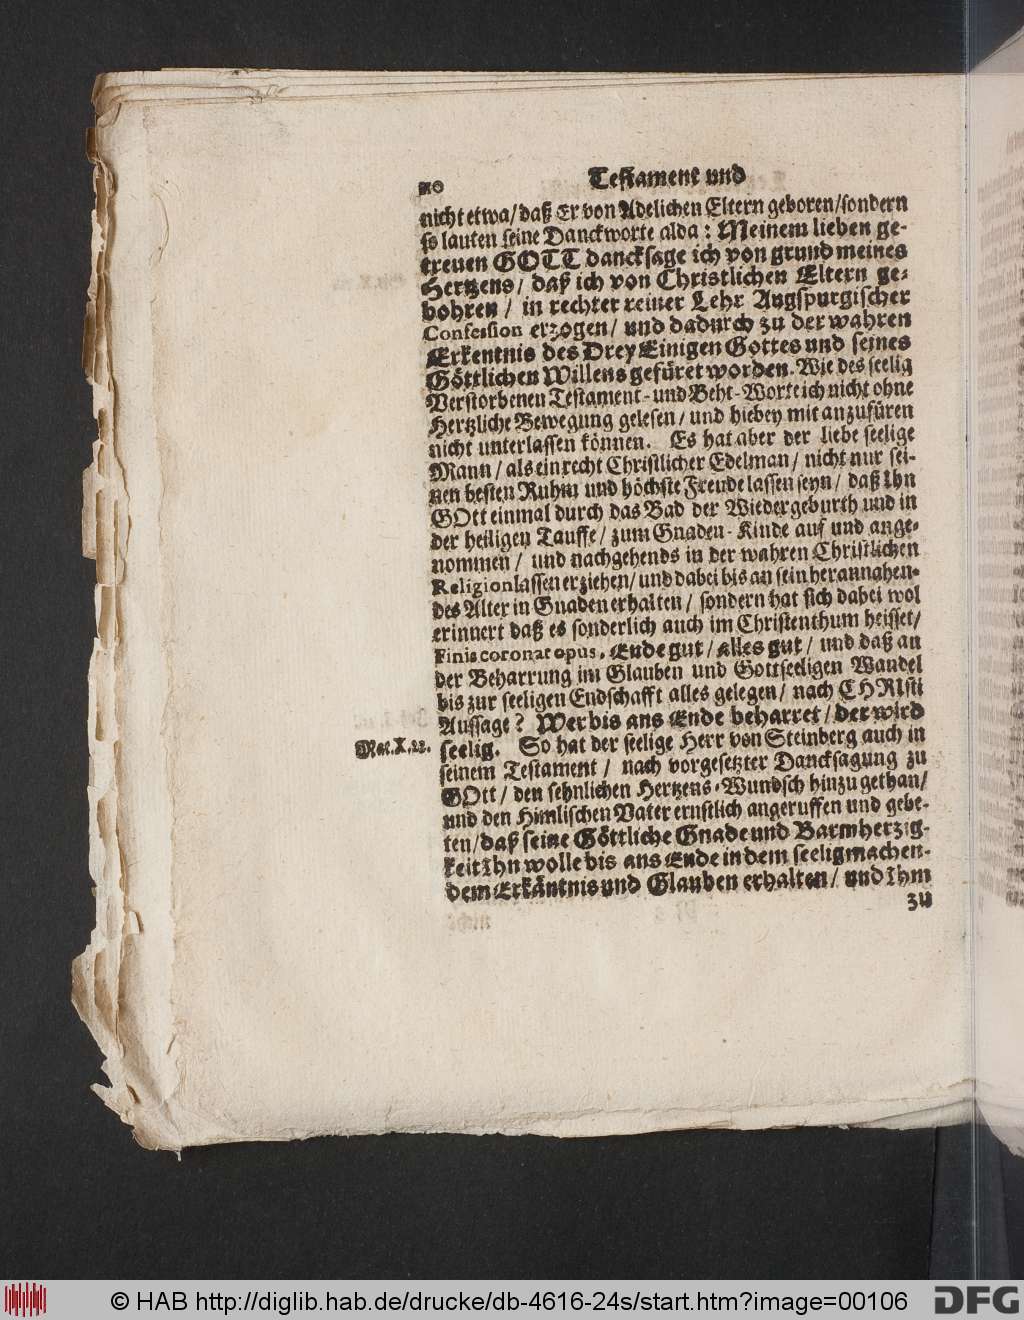 20 Testament und
nicht etwa/ daß Er von Adelichen Eltern geboren/ sondern
so lauten seine Danckworte alda: Meinem lieben ge-
treuen GOTT dancksage ich von grund meines
Hertzens/ daß ich von Christlichen Eltern ge-
bohren/ in rechter reiner Lehr Augspurgischer
Confession erzogen/ und dadurch zu der wahren
Erkentnis des Drey Einigen Gottes und seines
Göttlichen Willens gefüret worden. Wie des seelig
Verstorbenen Testament- und Beht-Worte ich nicht ohne
Hertzliche Bewegung gelesen/ und hiebey mit anzufüren
nicht unterlassen können. Es hat aber der liebe seelige
Mann/ als ein recht Christlicher Edelman/ nicht nur sei-
nen besten Ruhm und höchste Freude lassen seyn/ daß Ihn
GOtt einmal durch das Bad der Wiedergeburth und in
der heiligen Tauffe/ zum Gnaden-Kinde auf und ange-
nommen/ und nachgehends in der wahren Christlichen
Religion lassen erziehen/ und dabei bis an sein herannahen-
des Alter in Gnaden erhalten/ sondern hat sich dabei wol
erinnert daß es sonderlich auch im Christenthum heisset/
Finis coronat opus. Ende gut/ alles gut/ und daß an
der Beharrung im Glauben und Gottseeligen Wandel
bis zur seeligen Endschafft alles gelegen/ nach CHRIsti
Aussage? Wer bis ans Ende beharret/ der wird
Mat. X. 22. seelig. So hat der seelige Herr von Steinberg auch in
seinem Testament/ nach vorgesetzter Dancksagung zu
GOtt/ den sehnlichen Hertzens-Wundsch hinzu gethan/
und den Himlischen Vater ernstlich angeruffen und gebe-
ten/ daß seine Göttliche Gnade und Barmhertzig-
keit Ihn wolle bis ans Ende in dem seeligmachen-
dem Erkäntnis und Glauben erhalten/ und Ihm
zu
© HAB http://diglib.hab.de/drucke/db-4616-24s/start.htm?image=00106
DFG